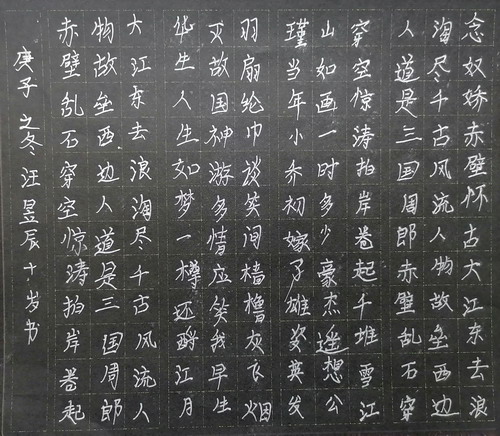 念奴娇赤壁怀古大江东去浪
淘尽千古风流人物故垒西边
人道是三国周郎赤壁乱石穿
穿空惊涛拍岸卷起千堆雪江
山如画一时多少豪杰遥想公
瑾当年小乔初嫁了雄姿英发
羽扇纶巾谈笑间樯橹灰飞烟
灭故国神游多情应笑我早生
华生人生如梦一樽还酹江月
大江东去浪淘尽千古风流人
物故垒西边人道是三国周郎
赤壁乱石穿空惊涛拍岸卷起
庚子之冬汪昱辰十岁书